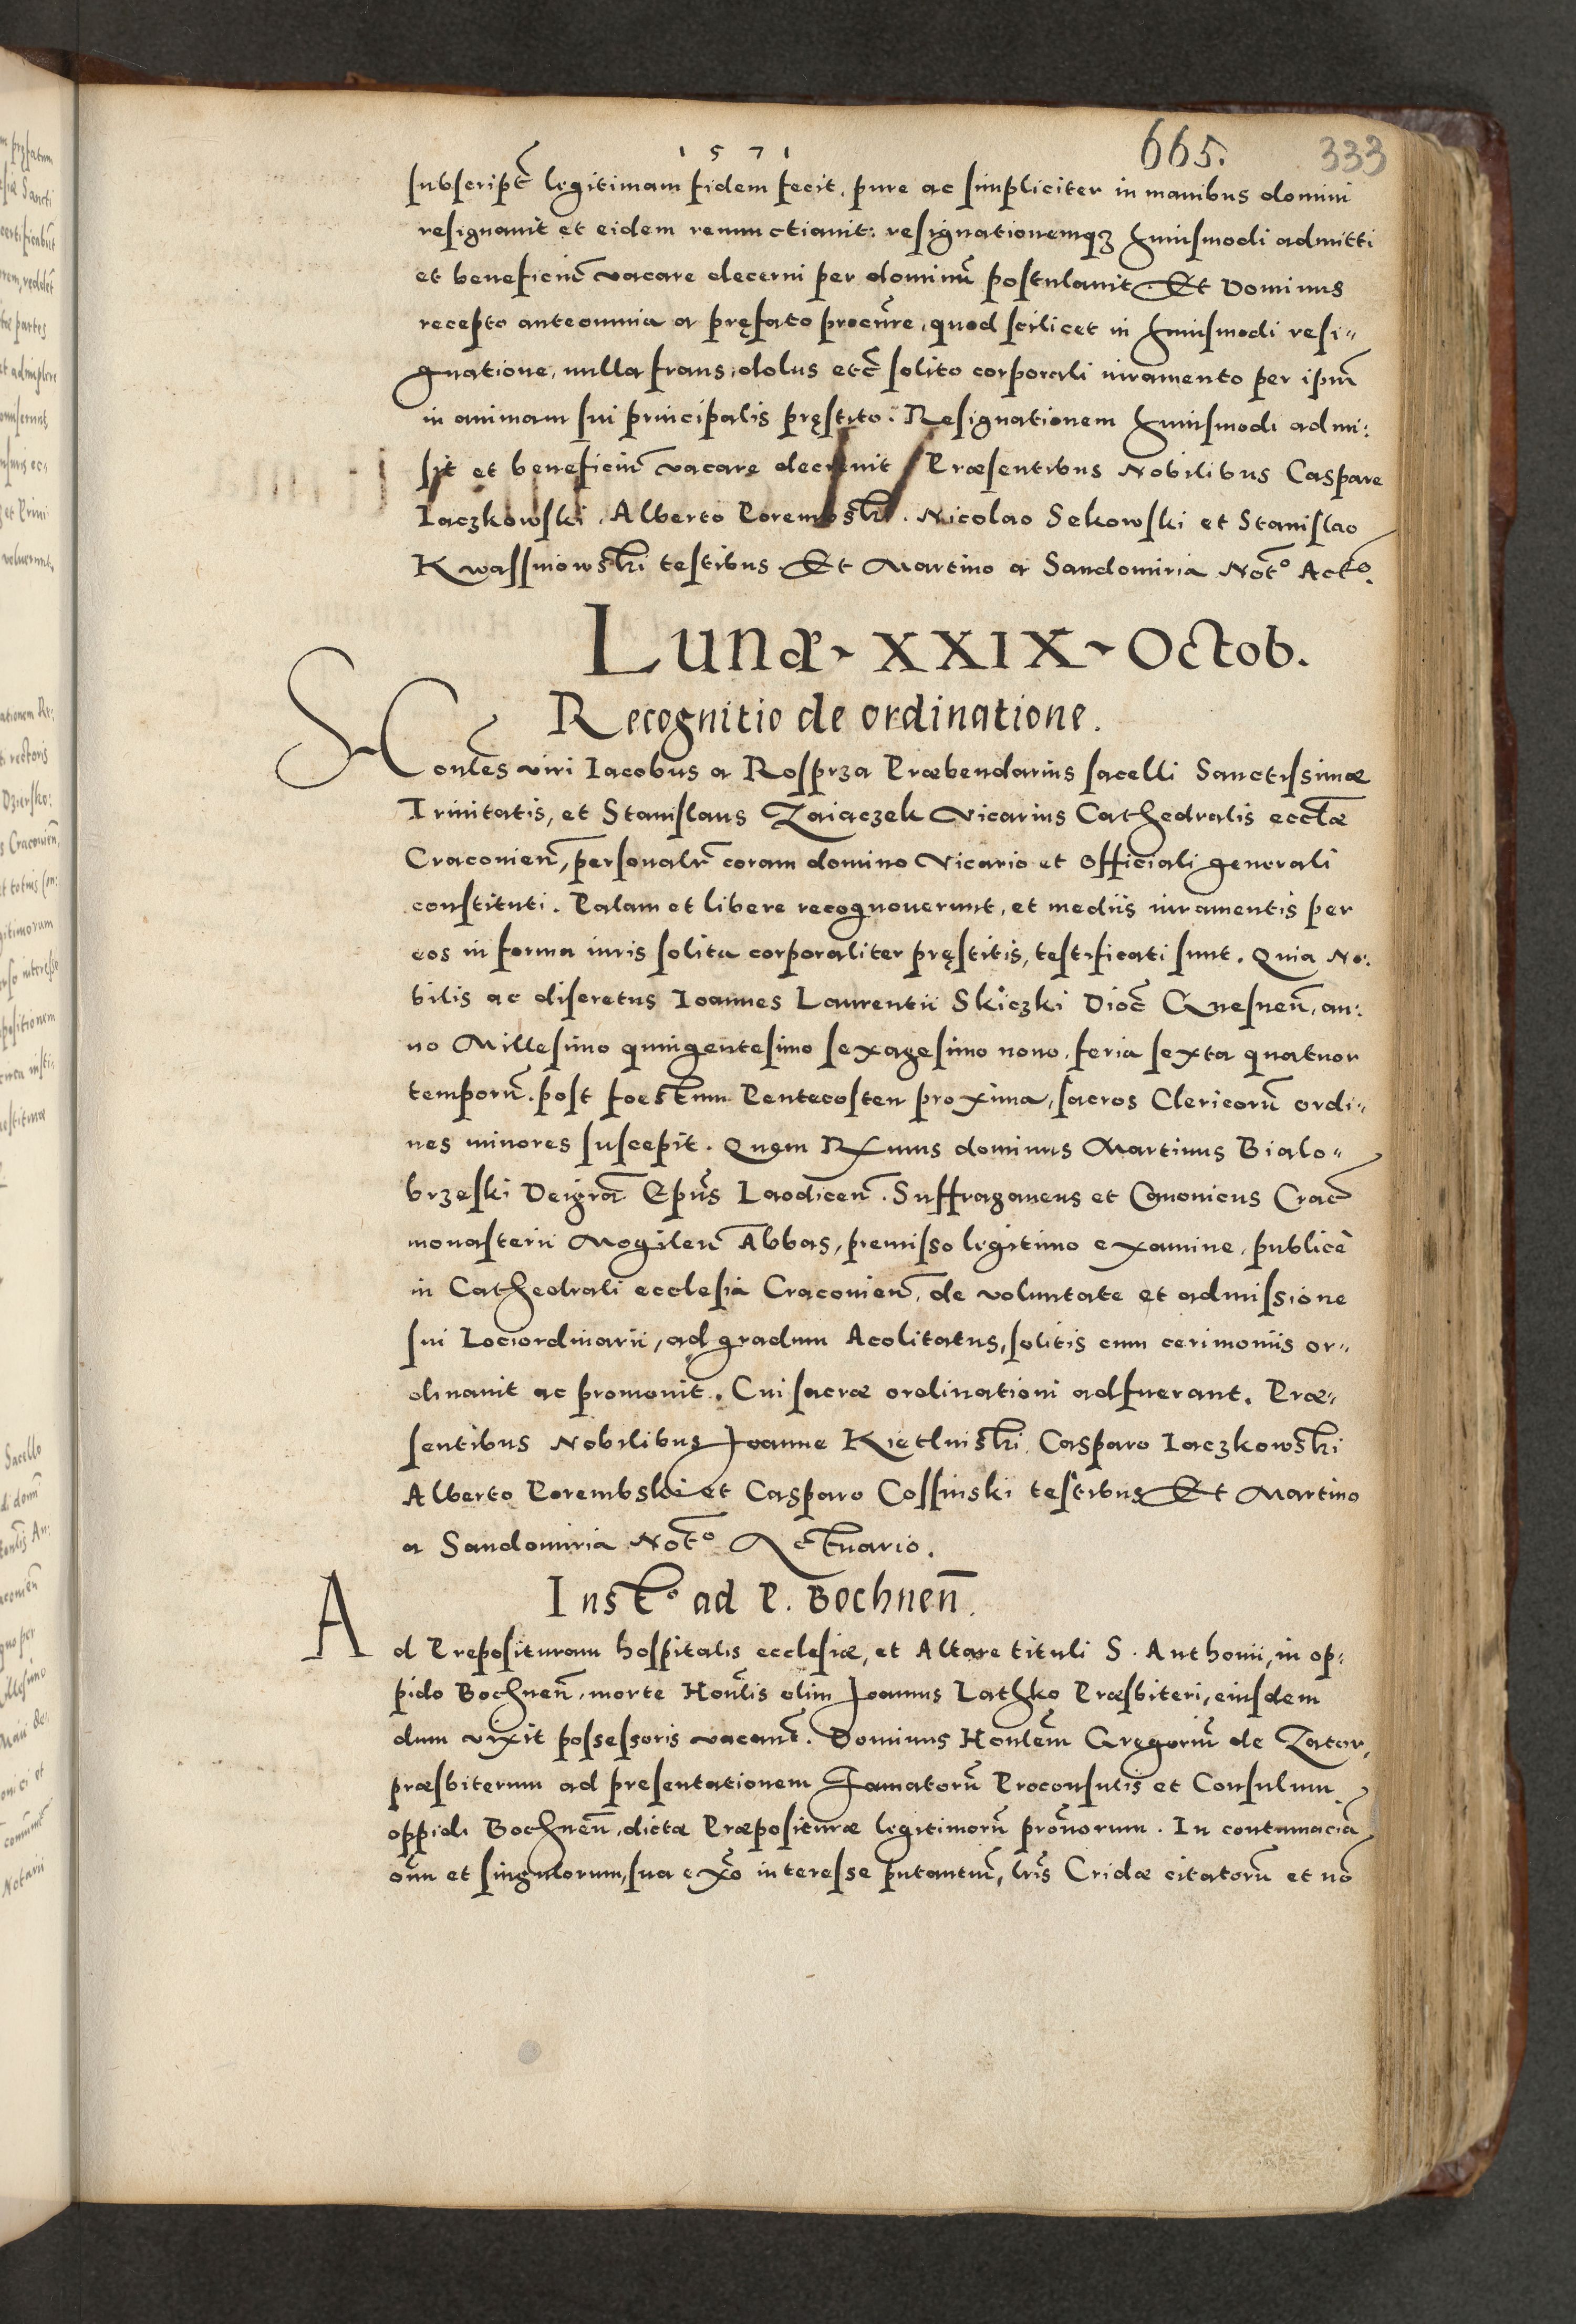 1571
665.
333
subscript̃ legitimam fidem fecit, pure ac simpliciter in manibus domini
resignauit et eidem renunctiauit: resignationemqꝫ huiusmodi admitti
et beneficiũ vacare decerni per dominũ postulauit. Et Dominus
recepto anteomnia a pręfato procũre, quod scilicet in huiusmodi resi„
gnatione, nulla fraus, dolus etc̃ solito corporali iuramento per ipm̃
in animam sui principalis pręstito. Resignationem huiusmodi admi:
sit et beneficiũ vacare decreuit / Præsentibus Nobilibus Caspare
Iaczkowski, Alberto Porembski. Nicolao Sekowski et Stanislao
Kwassniowski testibus. Et Martino a Sandomiria Not̃o Act̃o.
Lunæ ~ XXIX ~ Octob.
Recognitio de ordinatione.
Honles̃ viri Iacobus a Rosprza Præbendarius sacelli Sanctissimæ
Trinitatis, et Stanislaus Zaiaczek Vicarius Cathedralis ecclæ̃
Craconien̄, personalr̃ coram domino Vicario et Officiali generali
constituti. Palam et libere recognouerunt, et mediis iuramentis per
eos in forma iuris solita corporaliter pręstitis, testificati sunt. Quia No:
bilis ac discretus Ioannes Laurentii Skiczki Dioc̃ Gnesnen̄, an:
no Millesimo quingentesimo sexagesimo nono, feria sexta quatuor
temporũ. post foestum Pentecosten proxima, sacros Clericorũ ordi„
nes minores suscepit. Quem Rx̃mus dominus Martinus Bialo„
brzeski Deigrã Epũs Laodicen̄. Suffraganeus et Canonicus Crac̃
monasterii Mogilen̄ Abbas, premisso legitimo examine, publicè
in Cathedrali ecclesia Craconien̄, de voluntate et admissione
sui Lociordinarii, ad gradum Acolitatus, solitis cum cerimoniis or„
dinauit ac promouit. Cui sacræ ordinationi adfuerant. Præ„
sentibus Nobilibus Joanne Kietlinski, Casparo Iaczkowski
Alberto Porembski et Casparo Cossinski testibus Et Martino
a Sandomiria Not̃o Actuario.
Inst̃o ad P. Bochnen̄.
Ad Preposituram hospitalis ecclesiæ, et Altare tituli S. Anthonii, in op:
pido Bochnen̄, morte Honl̃is olim Joannis Lathko Præsbiteri, eiusdem
dum vixit possessoris vacant̃. Dominus Honlem̃ Gręgoriũ de Zator,
præsbiterum ad presentationem Famatorũ Proconsulis et Consulum
oppidi Bochnen̄, dictæ Præposituræ legitimorũ prõuorum. In contumaciã
oĩm et singulorum, sua ex̃o interesse putantiũ, lrĩs Cridæ citatorũ et nõ